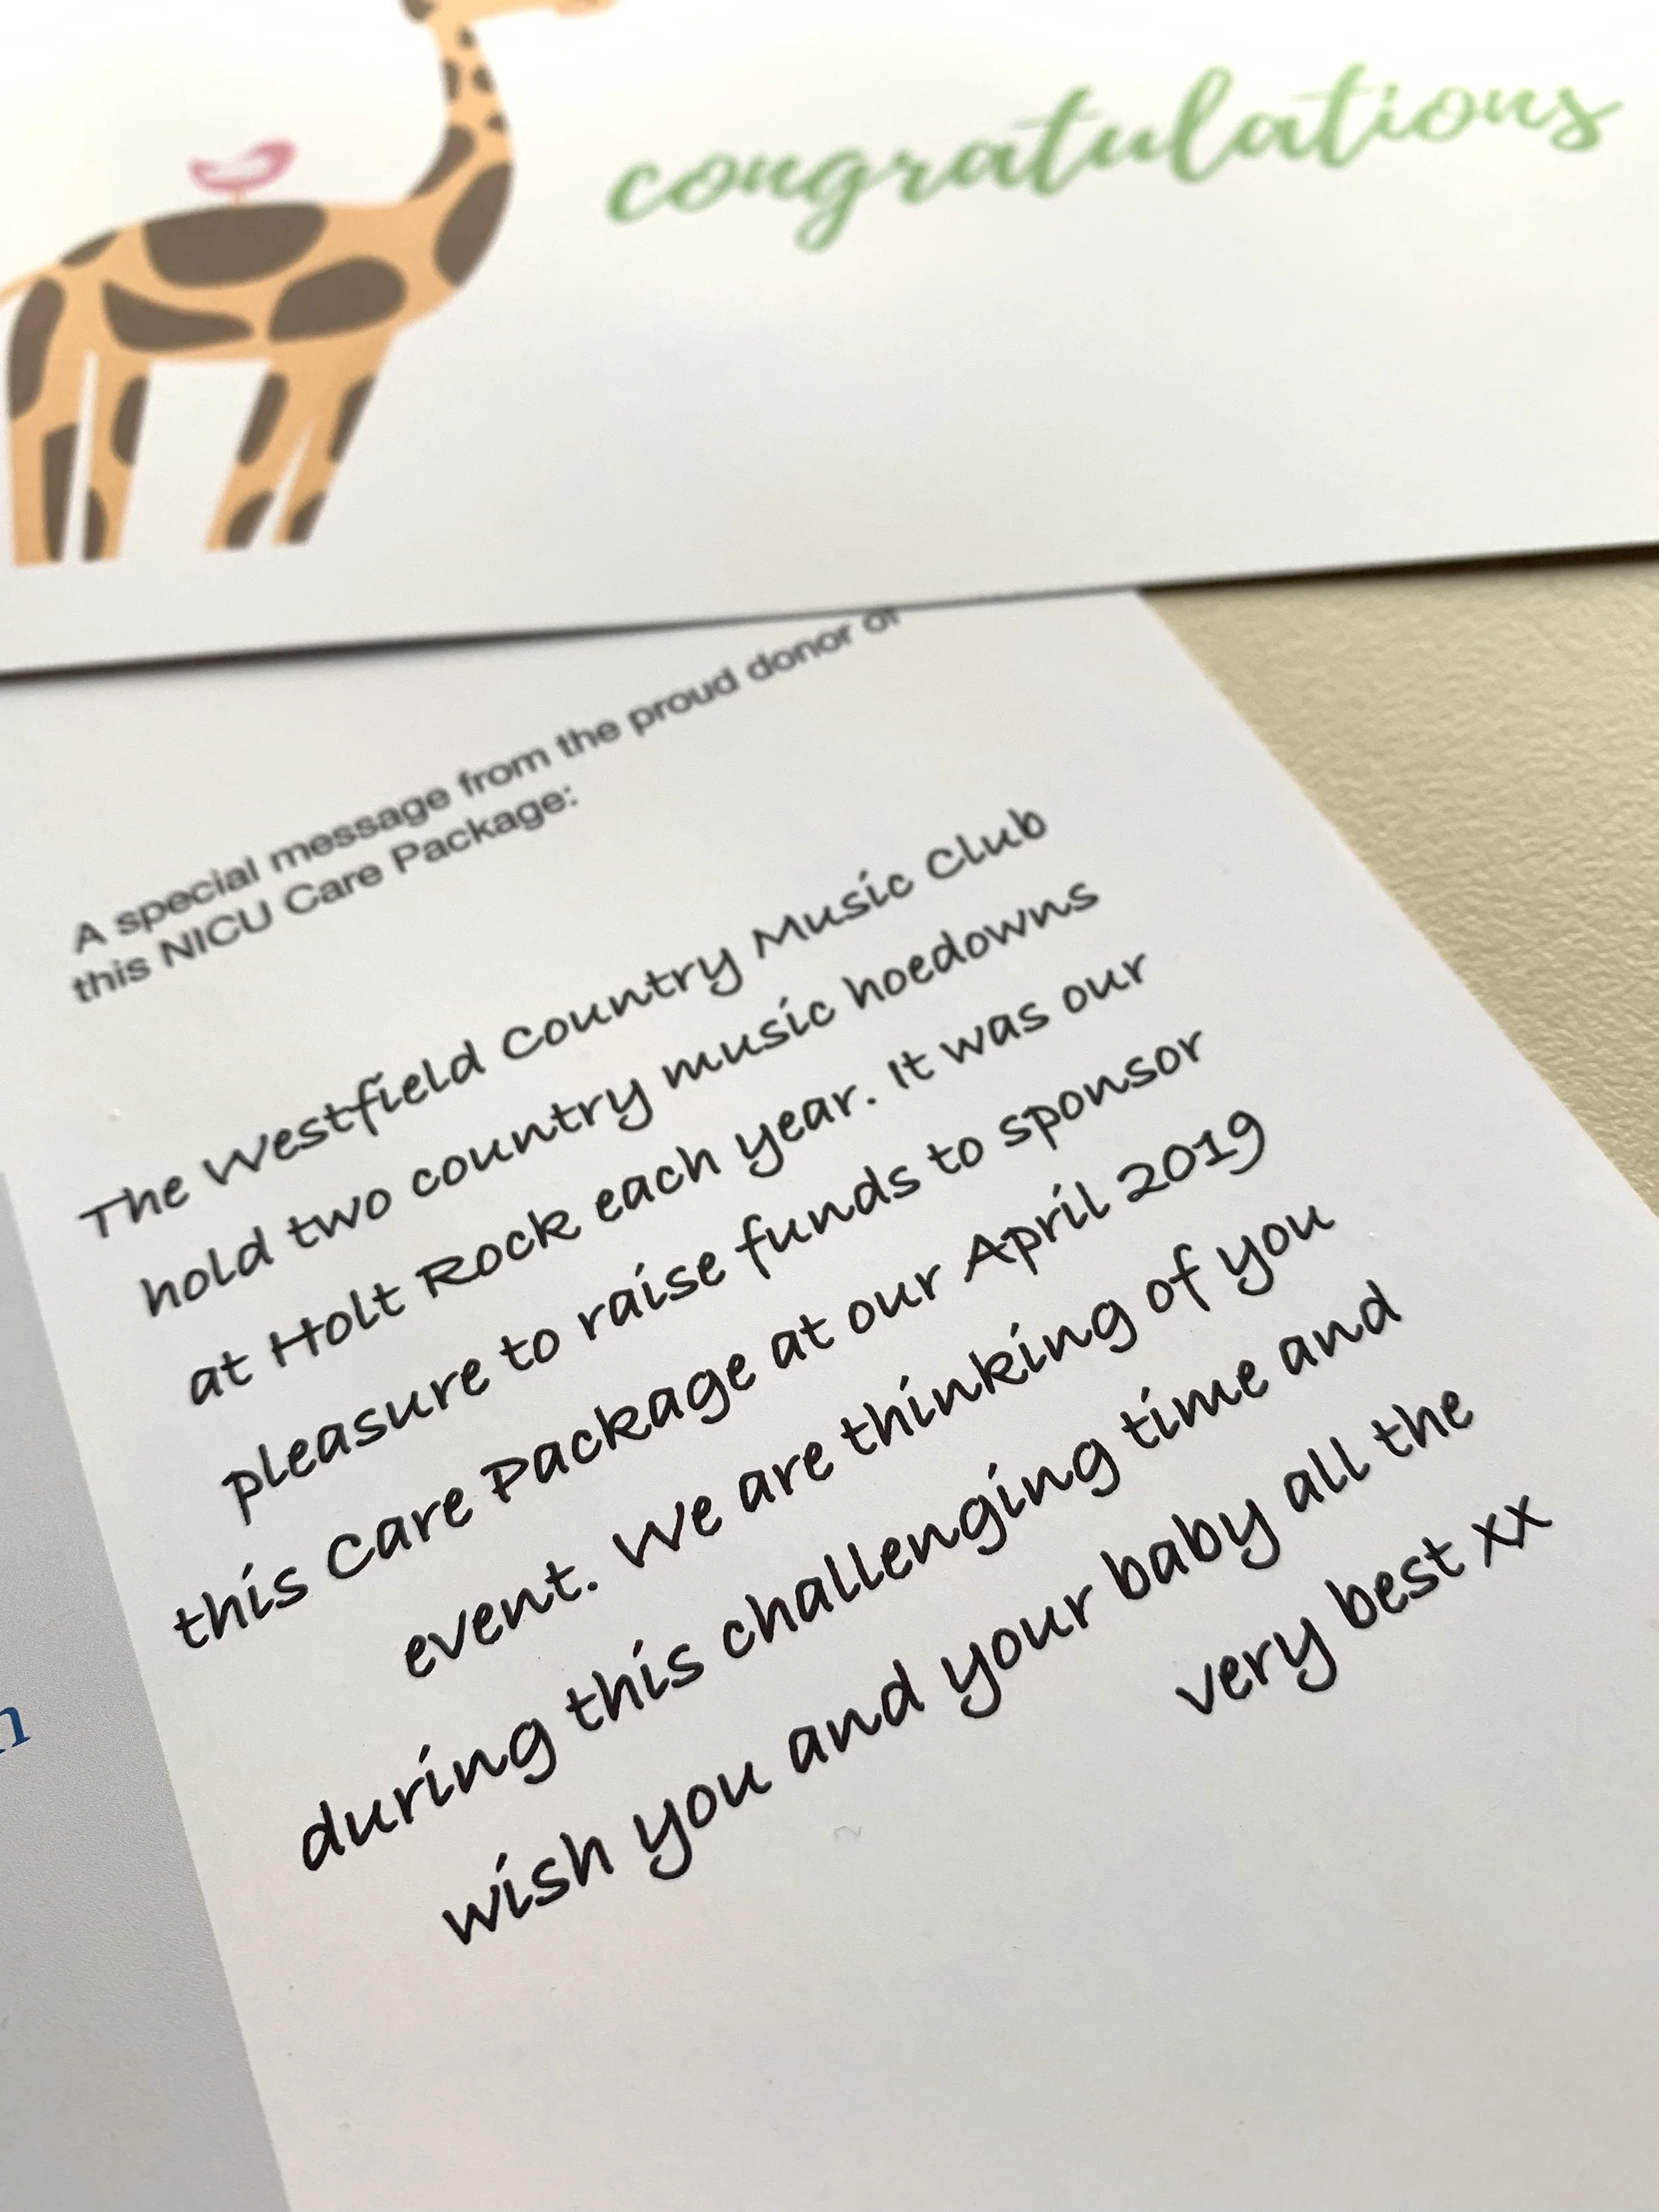 congratulations
A special message from the proud donor of
this NICU Care Package:
The Westfield Country Music Club
hold two country music hoedowns
at Holt Rock each year. It was our
pleasure to raise funds to sponsor
this Care Package at our April 2019
event. We are thinking of you
during this challenging time and
wish you and your baby all the
very best xx